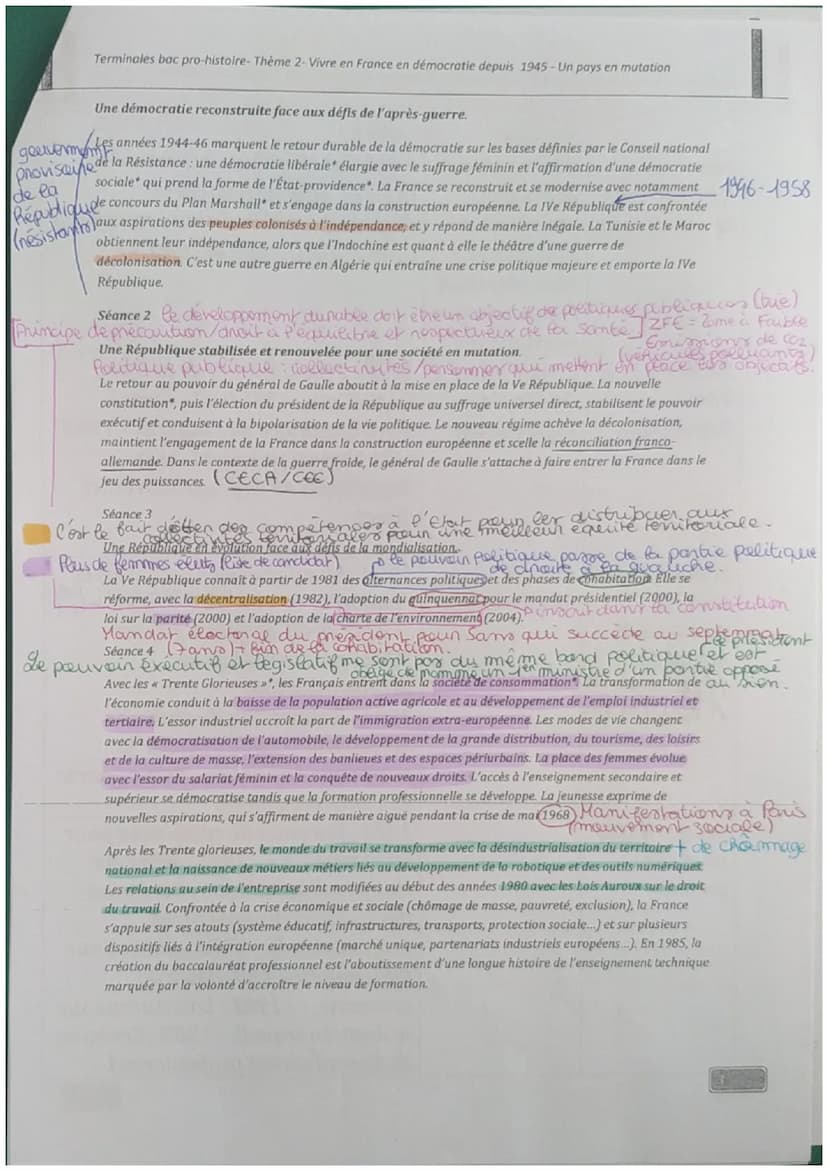 Terminales bac pro-histoire- Thème 2- Vivre en France en démocratie depuis 1945 – Un pays en mutation
Une démocratie reconstruite face aux défis de l'après-guerre.
gouvernement
provisoire
de la
République
(résistants)
Les années 1944-46 marquent le retour durable de la démocratie sur les bases définies par le Conseil national
de la Résistance : une démocratie libérale* élargie avec le suffrage féminin et l'affirmation d'une démocratie
sociale* qui prend la forme de l'État-providence*. La France se reconstruit et se modernise avec notamment 1946-1958
le concours du Plan Marshall* et s'engage dans la construction européenne. La IVe République est confrontée
aux aspirations des peuples colonisés à l'indépendance, et y répond de manière inégale. La Tunisie et le Maroc
obtiennent leur indépendance, alors que l'Indochine est quant à elle le théâtre d'une guerre de
décolonisation. C'est une autre guerre en Algérie qui entraîne une crise politique majeure et emporte la IVe
République.
Séance 2 le développement durable doit être un objectif de politiques publiques (lue)
Principe de précaution/droit à l'équilibre et respectueux de la santé] ZFE = Zone à Faible
Emissions de CO2
Une République stabilisée et renouvelée pour une société en mutation. (véhicules polluants)
Politique publique : collectivités/personnes qui mettent en place des objectifs.
Le retour au pouvoir du général de Gaulle aboutit à la mise en place de la Ve République. La nouvelle
constitution*, puis l'élection du président de la République au suffrage universel direct, stabilisent le pouvoir
exécutif et conduisent à la bipolarisation de la vie politique. Le nouveau régime achève la décolonisation,
maintient l'engagement de la France dans la construction européenne et scelle la réconciliation franco-
allemande. Dans le contexte de la guerre froide, le général de Gaulle s'attache à faire entrer la France dans le
jeu des puissances. (CECA/CEE)
Séance 3
C'est le fait d'ôter des compétences à l'Etat pour les distribuer aux
collectivités territoriales pour une meilleur équité territoriale.
Une République en évolution face aux défis de la mondialisation.
Plus de femmes éluts (liste de candidat) le pouvoir politique passe de la partie politique
de droite à la gauche.
La Ve République connaît à partir de 1981 des alternances politiques et des phases de cohabitation. Elle se
réforme, avec la décentralisation (1982), l'adoption du quinquennat pour le mandat présidentiel (2000), la
loi sur la parité (2000) et l'adoption de la charte de l'environnement (2004). inscrit dans la constitution
Mandat électoral du président pour 5ans qui succède au septennat
Séance 4 (7ans) + fin de la cohabitation. le président
Le pouvoir exécutif et législatif ne sont pas du même bord politique et est
obligé de nommé un 1er ministre d'un partie opposé
au sien.
Avec les « Trente Glorieuses »*, les Français entrent dans la société de consommation*. La transformation de
l'économie conduit à la baisse de la population active agricole et au développement de l'emploi industriel et
tertiaire. L'essor industriel accroît la part de l'immigration extra-européenne. Les modes de vie changent
avec la démocratisation de l'automobile, le développement de la grande distribution, du tourisme, des loisirs
et de la culture de masse, l'extension des banlieues et des espaces périurbains. La place des femmes évolue
avec l'essor du salariat féminin et la conquête de nouveaux droits. L'accès à l'enseignement secondaire et
supérieur se démocratise tandis que la formation professionnelle se développe. La jeunesse exprime de
nouvelles aspirations, qui s'affirment de manière aiguë pendant la crise de mai 1968 Manifestations à Paris
(mouvement sociale)
Après les Trente glorieuses, le monde du travail se transforme avec la désindustrialisation du territoire + de chômage
national et la naissance de nouveaux métiers liés au développement de la robotique et des outils numériques.
Les relations au sein de l'entreprise sont modifiées au début des années 1980 avec les Lois Auroux sur le droit
du travail. Confrontée à la crise économique et sociale (chômage de masse, pauvreté, exclusion), la France
s'appuie sur ses atouts (système éducatif, infrastructures, transports, protection sociale...) et sur plusieurs
dispositifs liés à l'intégration européenne (marché unique, partenariats industriels européens...). En 1985, la
création du baccalauréat professionnel est l'aboutissement d'une longue histoire de l'enseignement technique
marquée par la volonté d'accroître le niveau de formation.